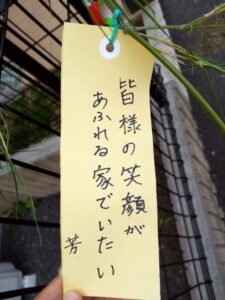 皆様の笑顔が
あふれる家でいたい
芳